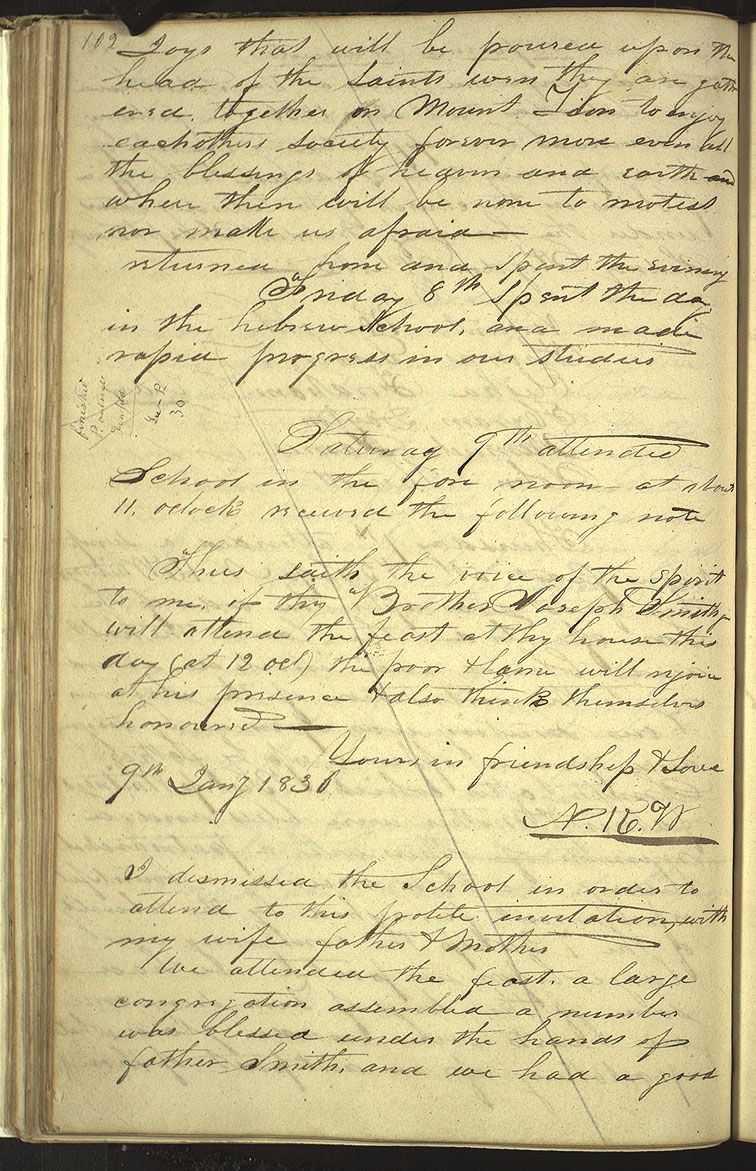 102
Joys that will be poured upon the
head of the Saints wen they are gath
ered together on Mount Zion to enjoy
eachothers society forever more even all
the blessings of heaven and earth and
where there will be none to molest
nor make us afraid—
returned home and spent the evening
Friday 8th Spent the day
in the hebrew School, and made
rapid progress in our studies
finished
P. 30
Saturday 9th attended
School in the fore noon at about
11. oclock received the following note
Thus saith the voice of the spirit
to me, if thy Brother Joseph Smith jr
will attend the feast at thy house this
day (at 12 ocl) the poor & lame will rejoice
at his presence & also think themselves
honoured—
Yours in friendship & Love
9th Jany 1836
N. K. W
I dismissed the School in order to
attend to this polite invitation, with
my wife father & Mother
We attended the feast. a large
congregation assembled a number
was blessed under the hands of
father Smith, and we had a good